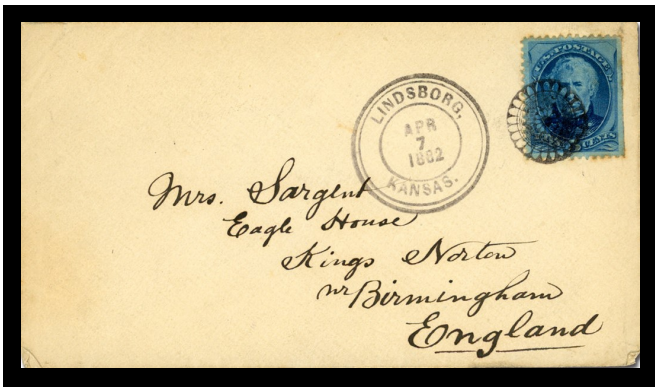 U.S. POSTAGE
LINDSBORG,
APR
7
1882
KANSAS.
Mrs. Sargent
Eagle House
Kings Norton
nr Birmingham
England